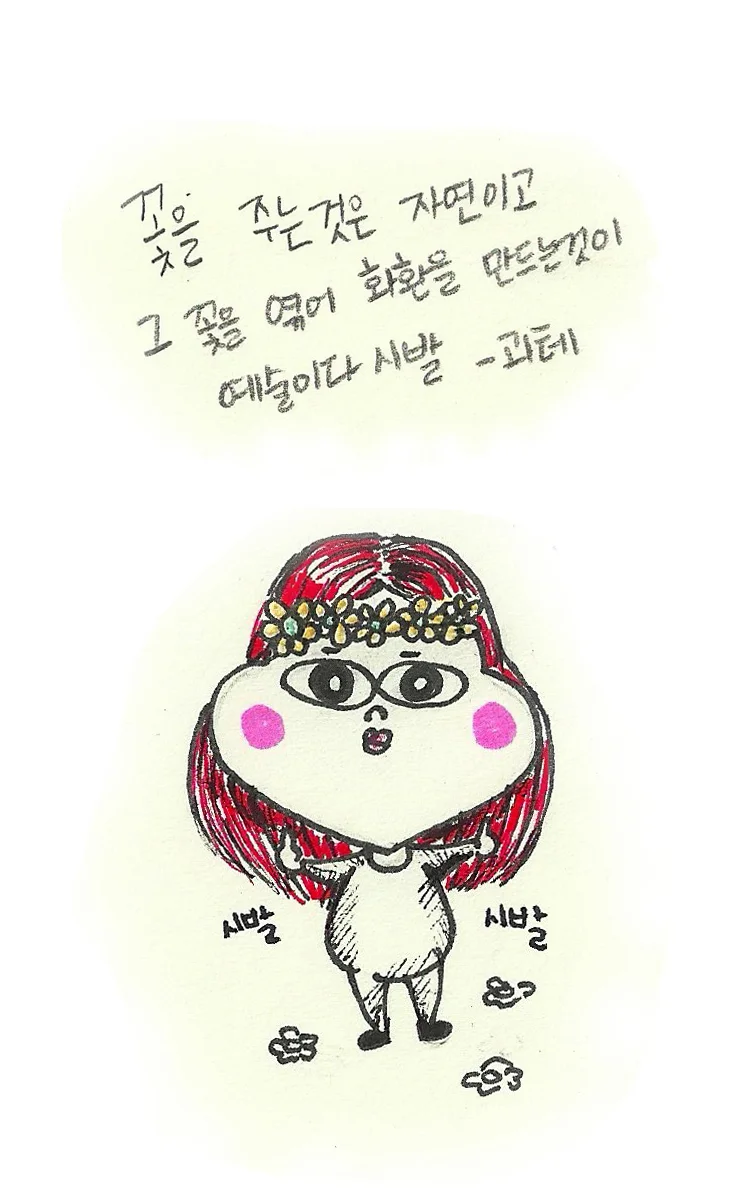 꽃을 주는것은 자연이고
그 꽃을 엮어 화환을 만드는것이
예술이다 시발 -괴테
시발 시발